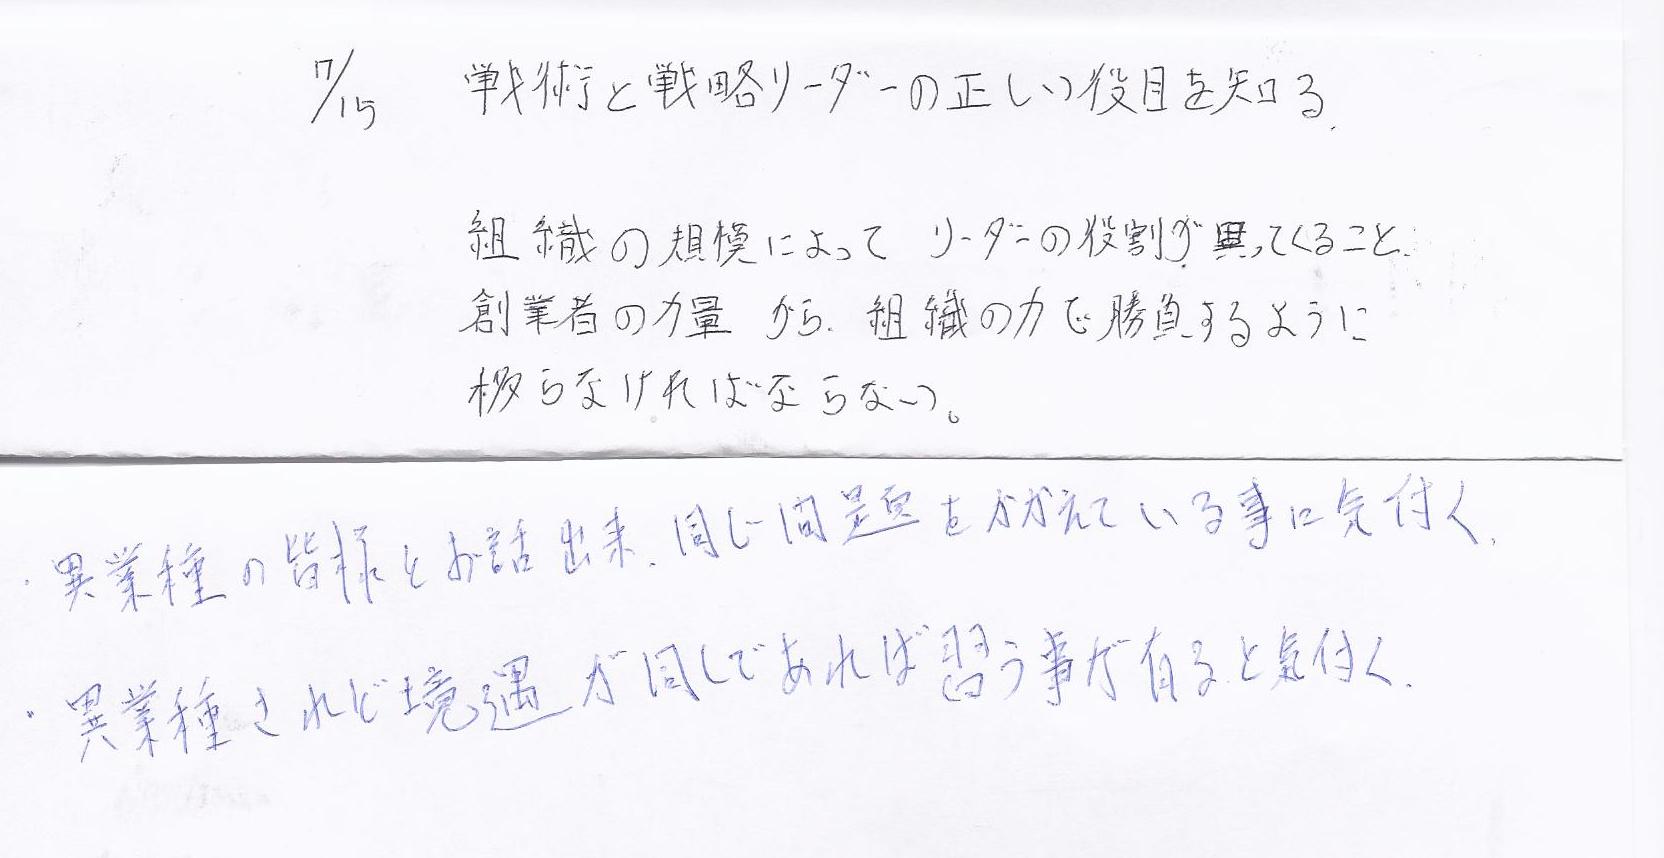 7/15 戦術と戦略リーダーの正しい役目を知る.
組織の規模によって リーダーの役割が異ってくること.
創業者の力量 から. 組織の力で勝負するように
移らなければならない。
・異業種の皆様とお話出来、同じ問題をかかえている事に気付く.
・異業種されど境遇が同じであれば習う事が有ると気付く.